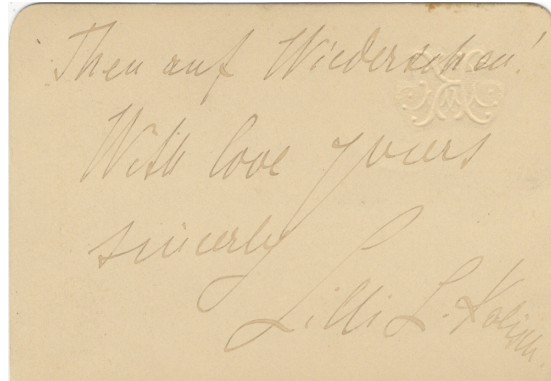 Then auf Wiedersehen!
With love yours
sincerely
Lilli L.